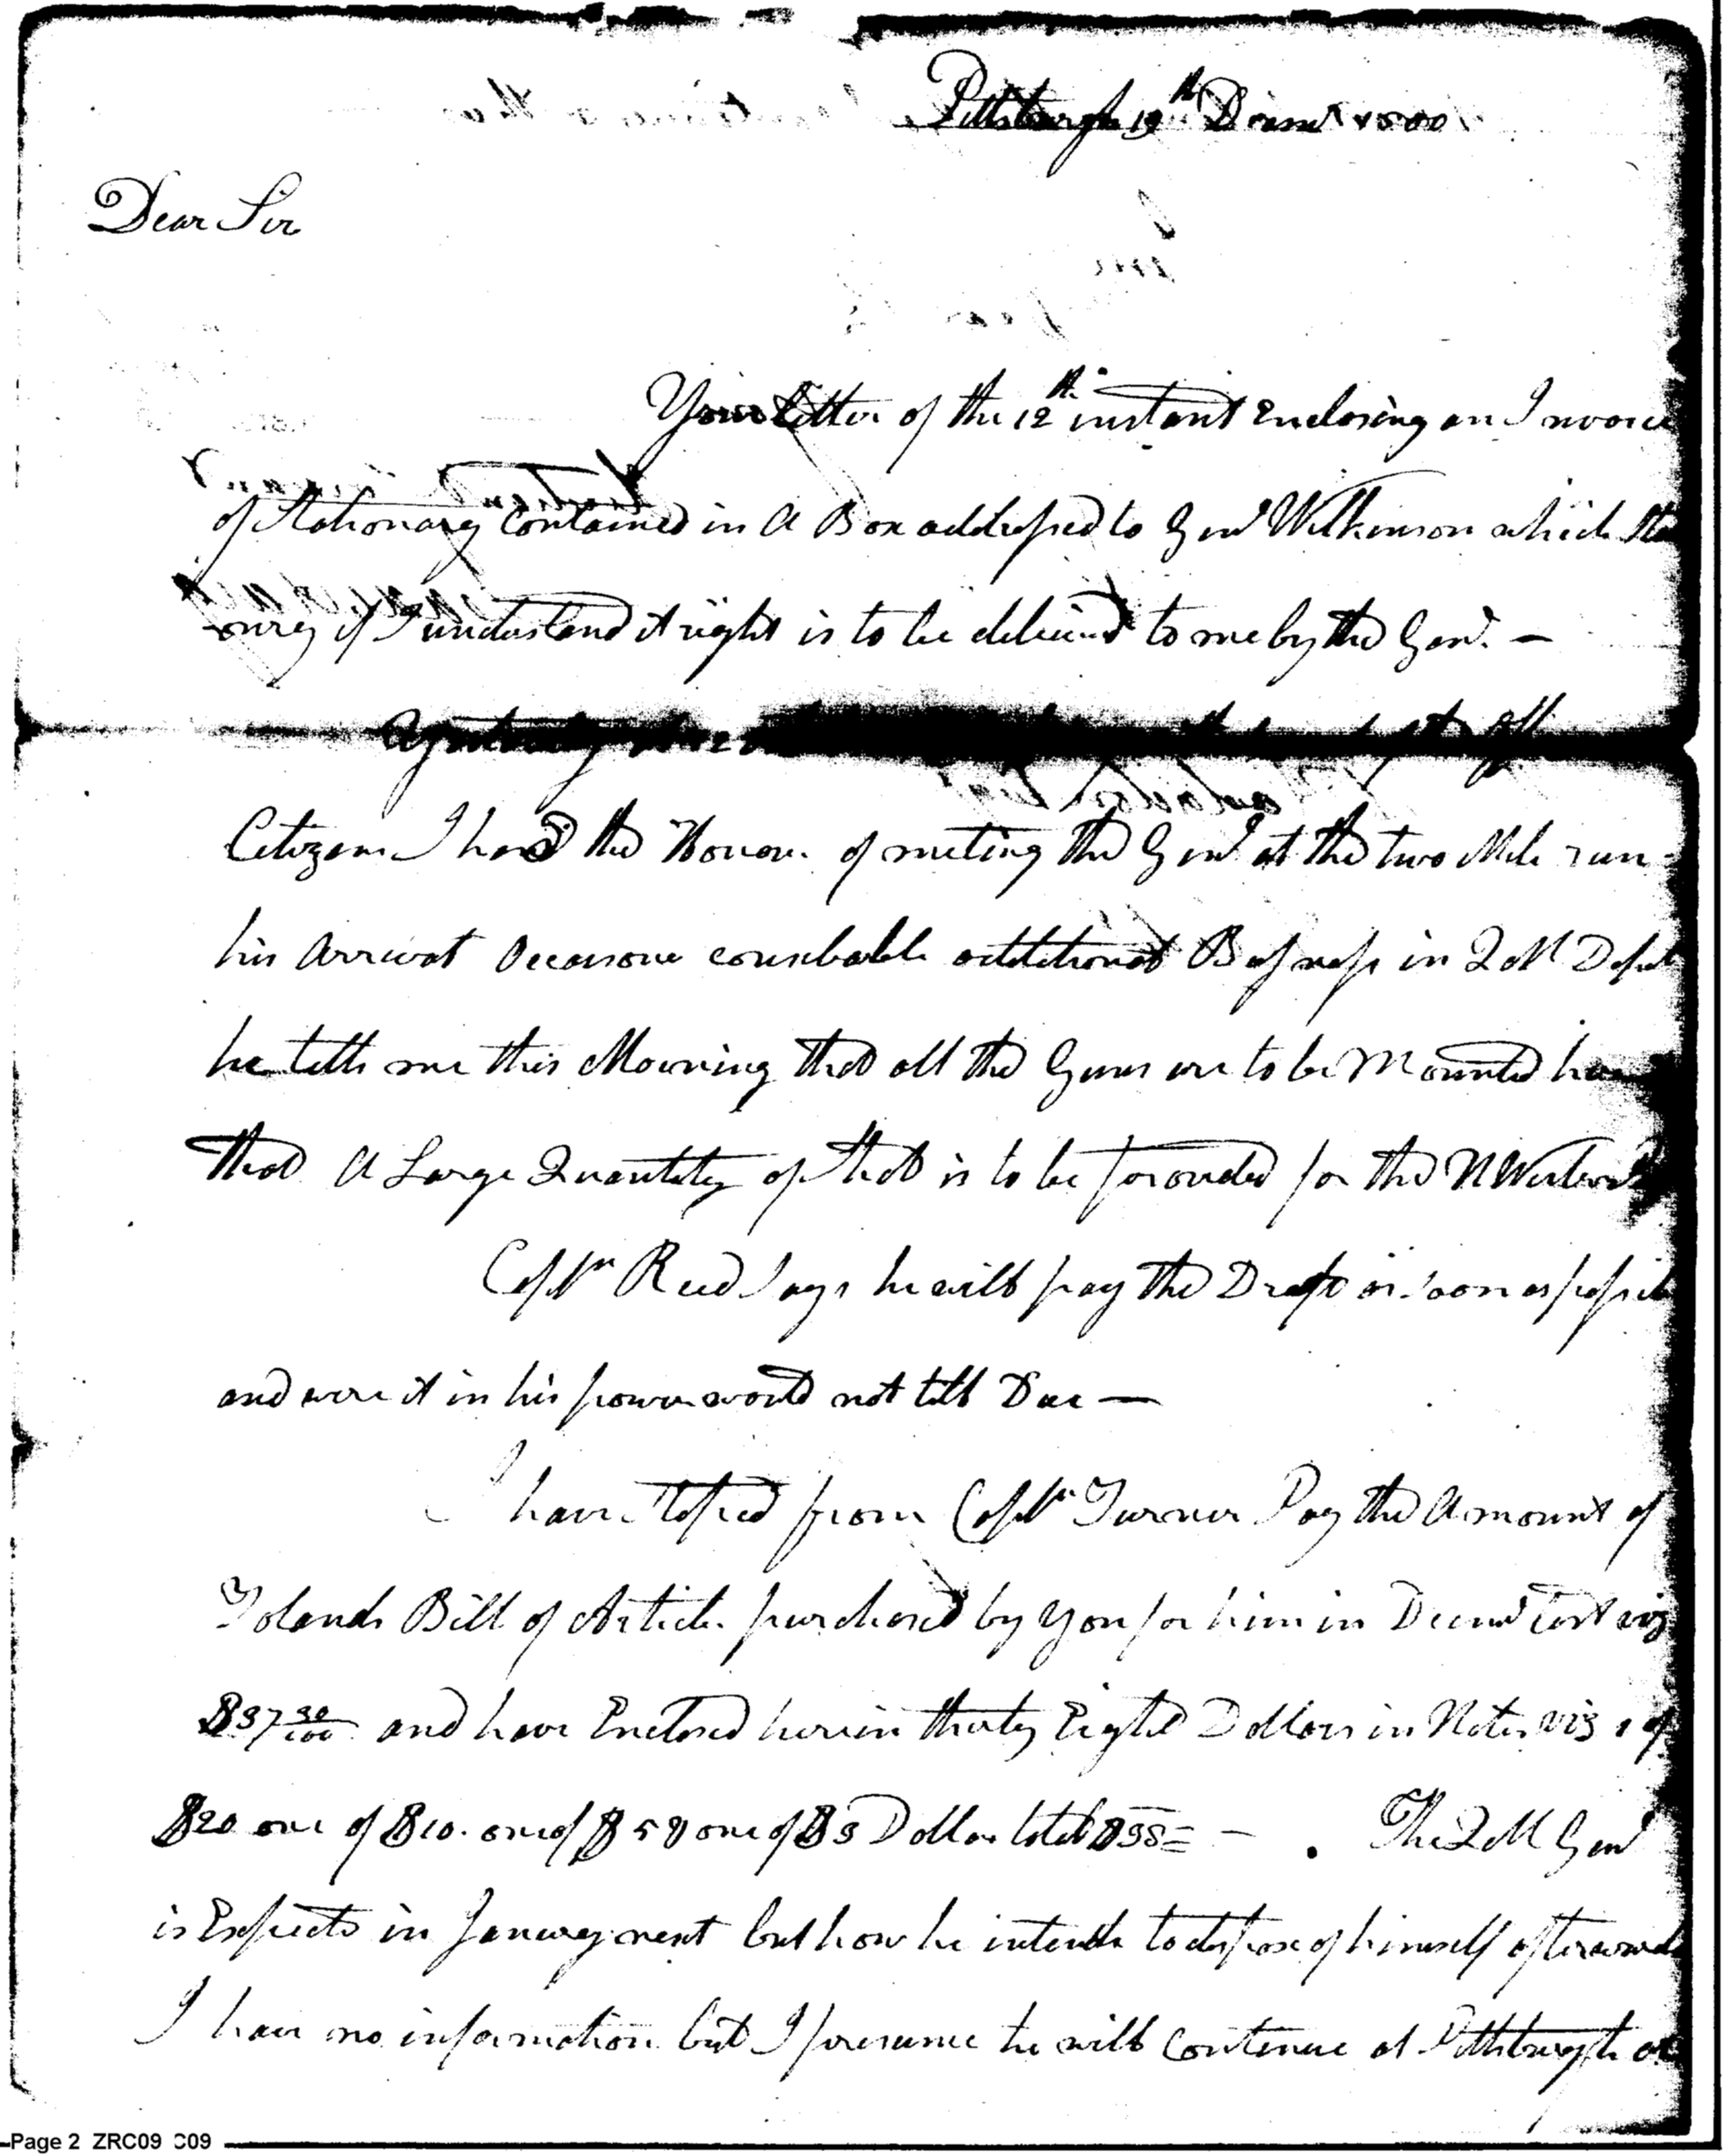 Pittsburgh 19th Decemr 1800
Dear Sir
Your letter of the 12th instant Enclosing an Invoice
of Stationary Contained in A Box addressed to Genl Wilkinson which
if I understand it right is to be delivered to me by the Genl. —
Yesterday
Citizens I had the Honour of meeting the Genl at the two Mile run
his arrival Occasions additional in Q M
he tells me this Morning that all the Guns are to be Mounted
that A Large Quantity of that is to be for the N Western
Captn Reed says he will pay the Draft as soon as
and were it in his power would not till Due —
I have from Captn Turner Pay the Amount of
Bill of Articles purchased by you for him in Decemr last viz
$37 30/100 and have Enclosed herein thirty Eight Dollars in Notes viz 1 of
$20 one of $10. one of $5 & one of $3 Dollars total $38 = — . The Q M Genl
is Expected in January next but how he intends to dispose of himself afterwards
I have no information but I presume he will Continue at Pittsburgh
Page 2 ZRC09 C09